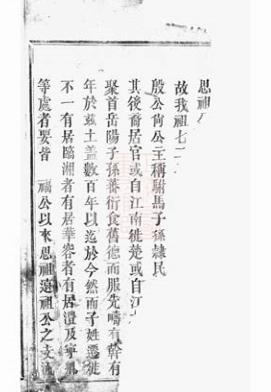 思祖
故我祖七二
殷公尙公主稱駙馬子孫隷民
其後裔居官或自江南徙楚或自江
聚首岳陽子孫蕃衍食舊德而服先疇有幹有
年於玆土蓋數百年以迄於今然而子姓遷徙
不一有居臨湘者有居華容者有居澧及寧
等處者要皆 福公以來思祖遠祖公之支